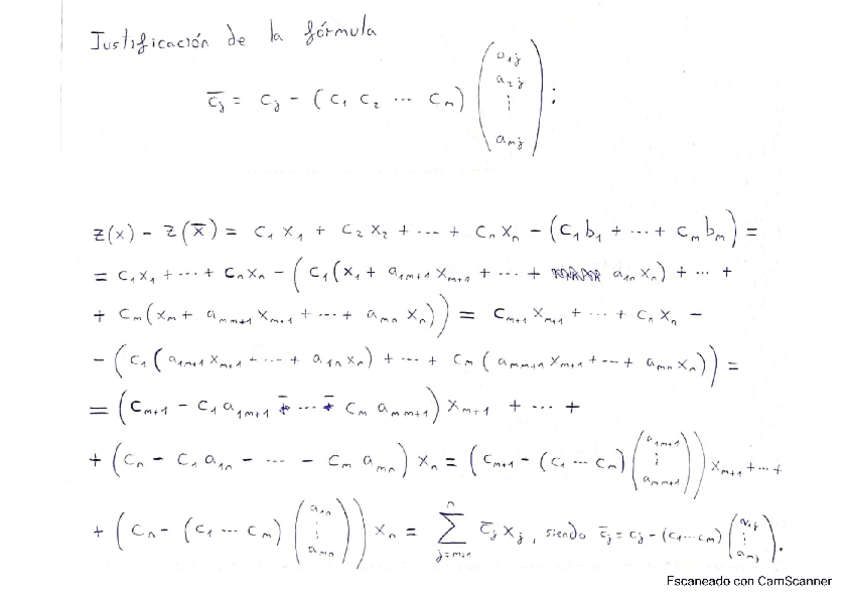 Justificación de la fórmula
c̄ⱼ = cⱼ - (c₁ c₂ ⋯ cₘ) (a₁ⱼ a₂ⱼ ⋮ aₘⱼ) ;
z(x) - z(x̄) = c₁x₁ + c₂x₂ + ⋯ + cₙxₙ - (c₁b₁ + ⋯ + cₘbₘ) =
= c₁x₁ + ⋯ + cₙxₙ - (c₁(x₁ + a₁ₘ₊₁xₘ₊₁ + ⋯ + a₁ₙxₙ) + ⋯ +
+ cₘ(xₘ + aₘₘ₊₁xₘ₊₁ + ⋯ + aₘₙxₙ)) = cₘ₊₁xₘ₊₁ + ⋯ + cₙxₙ -
- (c₁(a₁ₘ₊₁xₘ₊₁ + ⋯ + a₁ₙxₙ) + ⋯ + cₘ(aₘₘ₊₁xₘ₊₁ + ⋯ + aₘₙxₙ)) =
= (cₘ₊₁ - c₁a₁ₘ₊₁ - ⋯ - cₘaₘₘ₊₁)xₘ₊₁ + ⋯ +
+ (cₙ - c₁a₁ₙ - ⋯ - cₘaₘₙ)xₙ = (cₘ₊₁ - (c₁ ⋯ cₘ)(a₁ₘ₊₁ ⋮ aₘₘ₊₁))xₘ₊₁ + ⋯ +
+ (cₙ - (c₁ ⋯ cₘ)(a₁ₙ ⋮ aₘₙ))xₙ = ∑ⱼ₌ₘ₊₁ⁿ c̄ⱼxⱼ, siendo c̄ⱼ = cⱼ - (c₁ ⋯ cₘ)(a₁ⱼ ⋮ aₘⱼ).
Escaneado con CamScanner